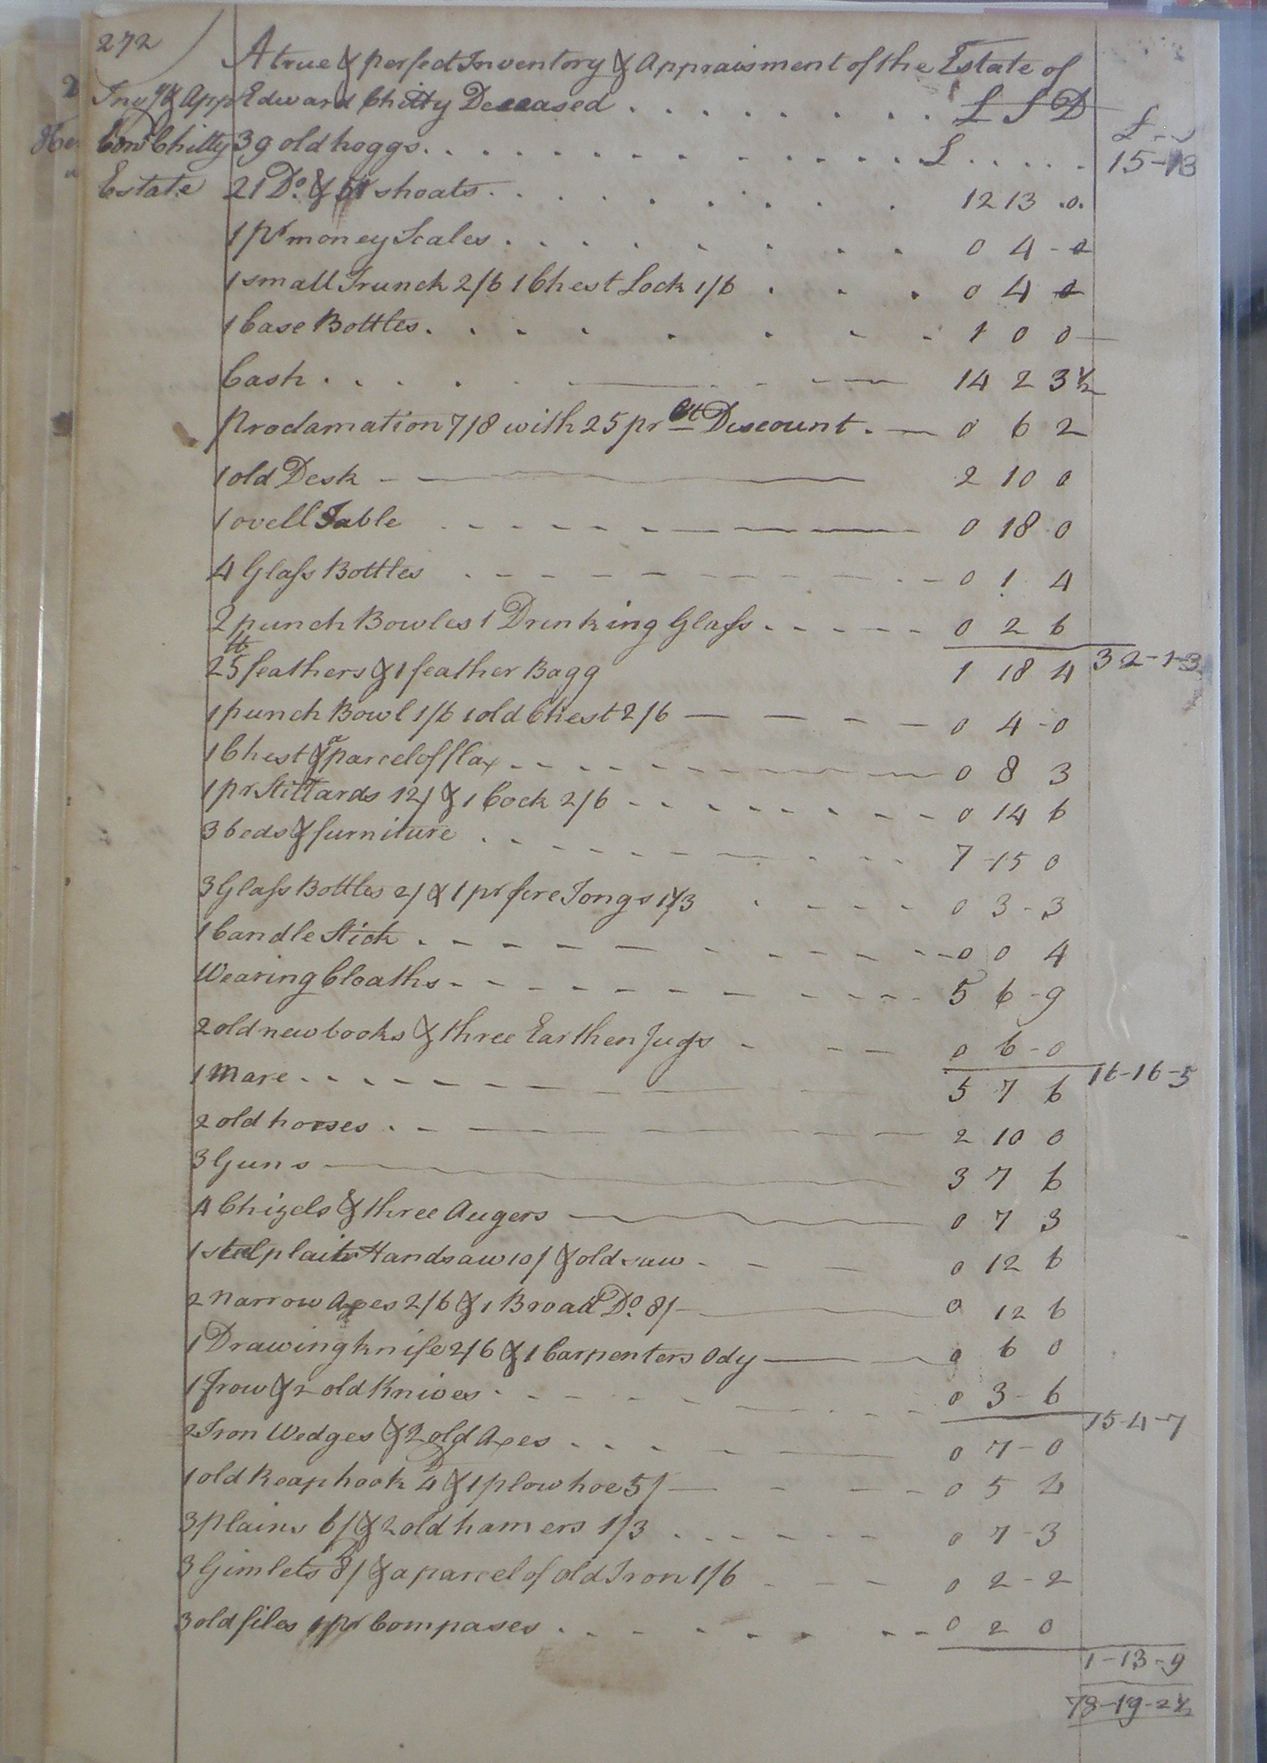 272
A true & perfect Inventory & Appraisment of the Estate of
Invy & App Edward Chitty Deceased . . . . . . . . £ S D
Edwd Chitty 39 old hoggs . . . . . . . . £ . . . . . 15-13
Estate 21 Do. & 51 shoats . . . . . . . 12 13 .0.
1 pr money Scales . . . . . . . . 0 4 - 0
1 small Trunck 2/6 1 Chest Lock 1/6 . . . . 0 4 0
1 Case Bottles . . . . . . . 1 0 0
Cash . . . . . 14 2 3½
Proclamation 7/8 with 25 pr Ct Discount . — 0 6 2
1 old Desk - — 2 10 0
1 ovell Table - - - - 0 18 0
4 Glass Bottles - - - - 0 1 4
2 punch Bowles 1 Drinking Glass . - - - - 0 2 6
32-1-3
25 lb feathers & 1 feather Bagg 1 18 4
1 punch Bowl 1/6 1 old Chest 2/6 — — - - 0 4 - 0
1 Chest & a parcel of flax . - - - - 0 8 3
1 pr Stillards 12/ & 1 Cock 2/6 - - - - - - - 0 14 6
3 beds & furniture . - - - - - 7 - 15 0
3 Glass Bottles 2/ & 1 pr fire Tongs 1/3 . - - - 0 3 - 3
1 Candle Stick . - - - - - - - - 0 0 4
Wearing Cloaths - - - - - - - - 5 6 - 9
2 old new books & three Earthen Jugs - - - 0 6 - 0
16-16-5
1 Mare . - - - - - - 5 7 6
2 old horses . - — 2 10 0
3 Guns — 3 7 6
4 Chizels & three Augers — 0 7 3
1 steel plaite Handsaw 10/ & old saw - - - 0 12 6
2 narrow Axes 2/6 & 1 Broad Do. 8/- — 0 12 6
1 Drawing knife 2/6 & 1 Carpenters Ody — 0 6 0
1 frow & 2 old Knives - - - - - - 0 3 - 6
15-4-7
2 Iron Wedges & 2 old Axes . . . - - 0 7 - 0
1 old Reap hook 4 D & 1 plow hoe 5/ — - - - 0 5 4
3 plains 6/ & 2 old hamers 1/3 . - - - - - 0 7 - 3
3 Gimlets 8/ & a parcel of old Iron 1/6 - - - 0 2 - 2
3 old files 1 pr Compases . - - - - - - 0 2 0
1-13-9
78-19-2½